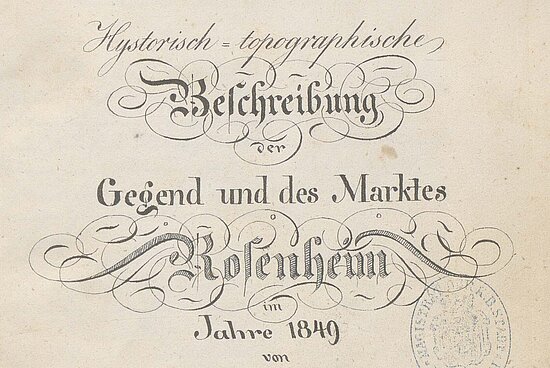 Hystorisch = topographische
Beſchreibung
der
Gegend und des Marktes
Roſenheim
im
Jahre 1849
von
MAGISTRAT
STADT